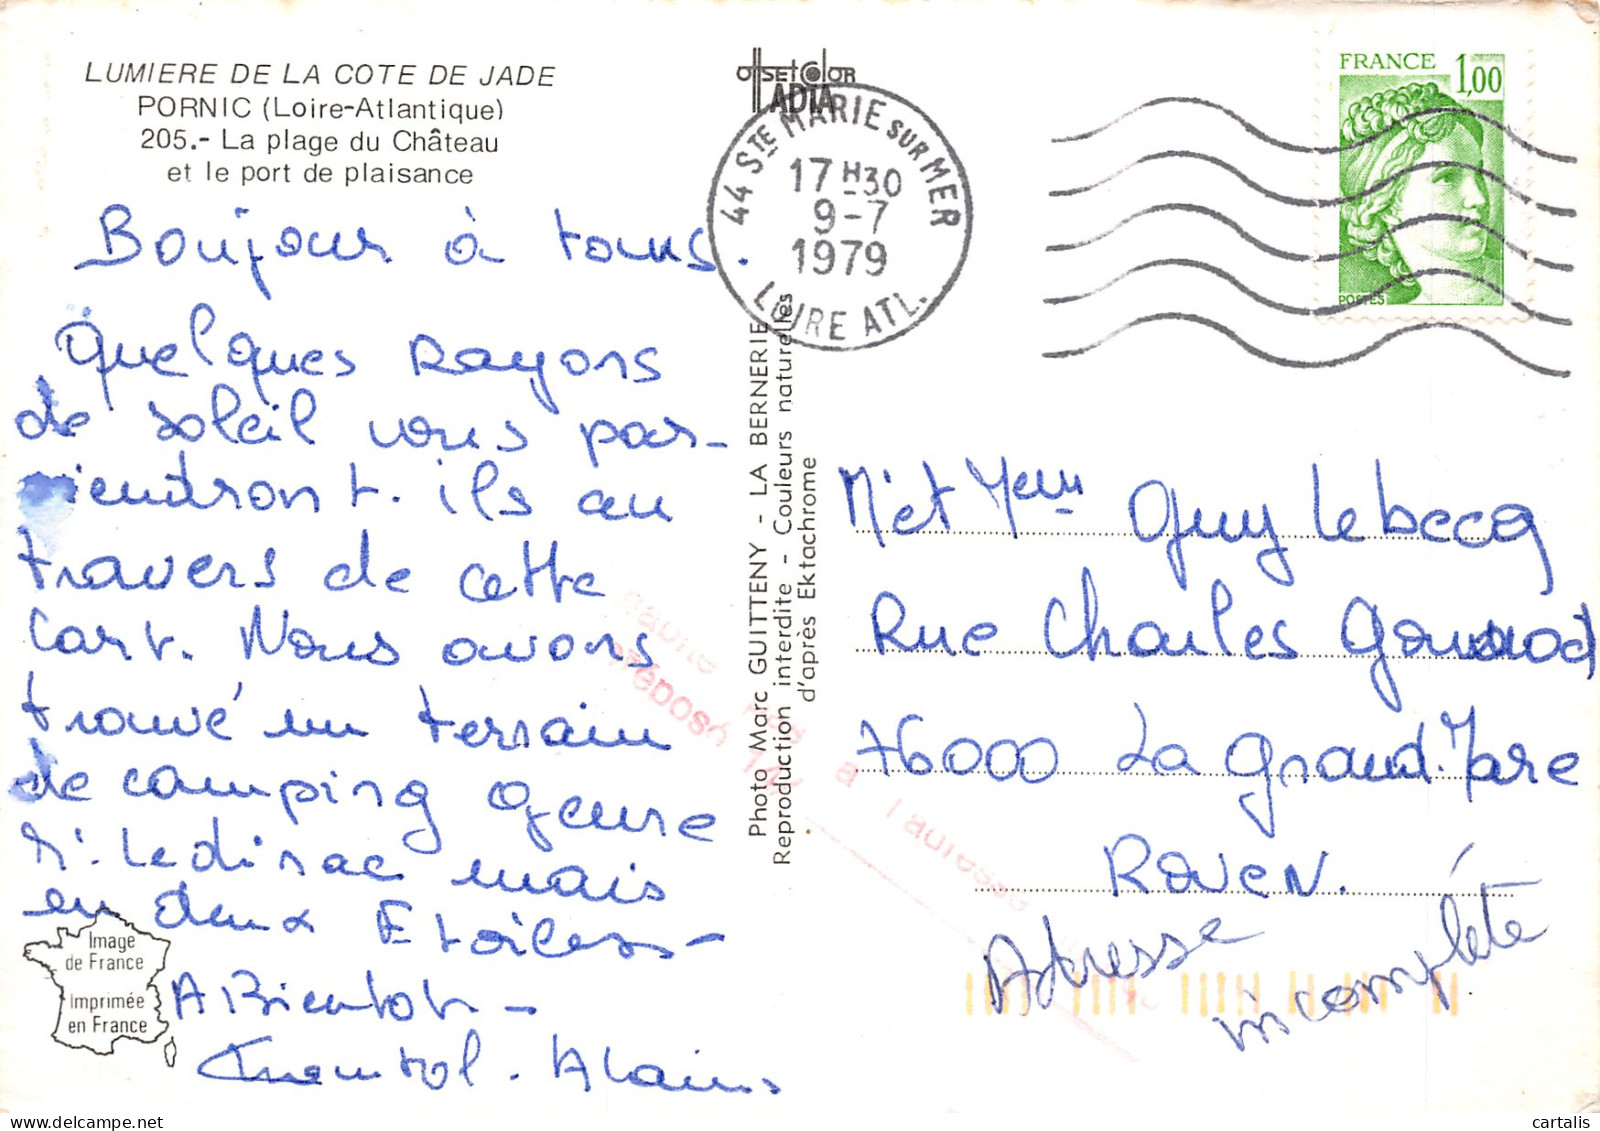 LUMIERE DE LA COTE DE JADE
PORNIC (Loire-Atlantique)
205.- La plage du Château
et le port de plaisance
Bonjour à tous.
Quelques rayons
de soleil vous par-
viendront. ils au
travers de cette
cart. Nous avons
trouvé un terrain
de camping genre
M. Ledisac mais
en deux Etoiles -
A Bientot -
Chantal. Alain
Image
de France
Imprimée
en France
OffsetColor
ADIA
44 STE MARIE SUR MER
17 H30
9-7
1979
LOIRE ATL.
FRANCE
1,00
POSTES
Photo Marc GUITTENY - LA BERNERIE
Reproduction interdite - Couleurs naturelles
d'après Ektachrome
n'habite pas à l'adresse
préposé
M. et Mme Guy Lebecq
Rue Charles Gounod
76000 La Grand. Mare
Rouen.
Adresse
incomplète
cartalis
delcampe.net